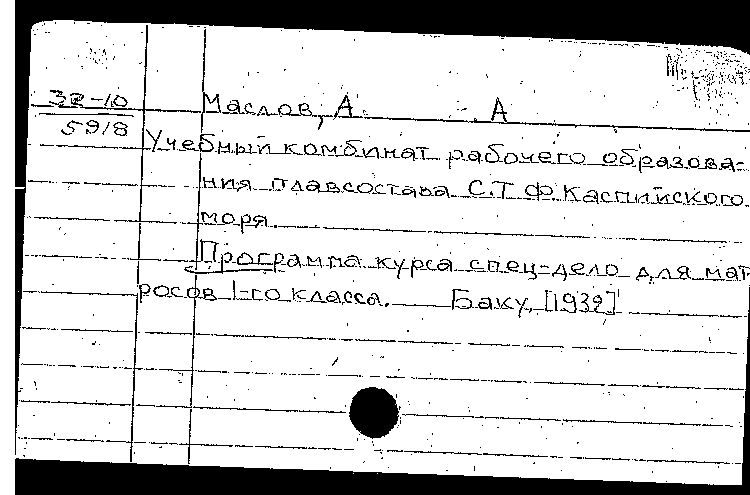 32-10
5918
Маслов, А. А
Учебный комбинат рабочего образова-
ния плавсостава С.Т.Ф. Каспийского
моря
Программа курса спец-дело для мат-
росов 1-го класса. — Баку, [1932]